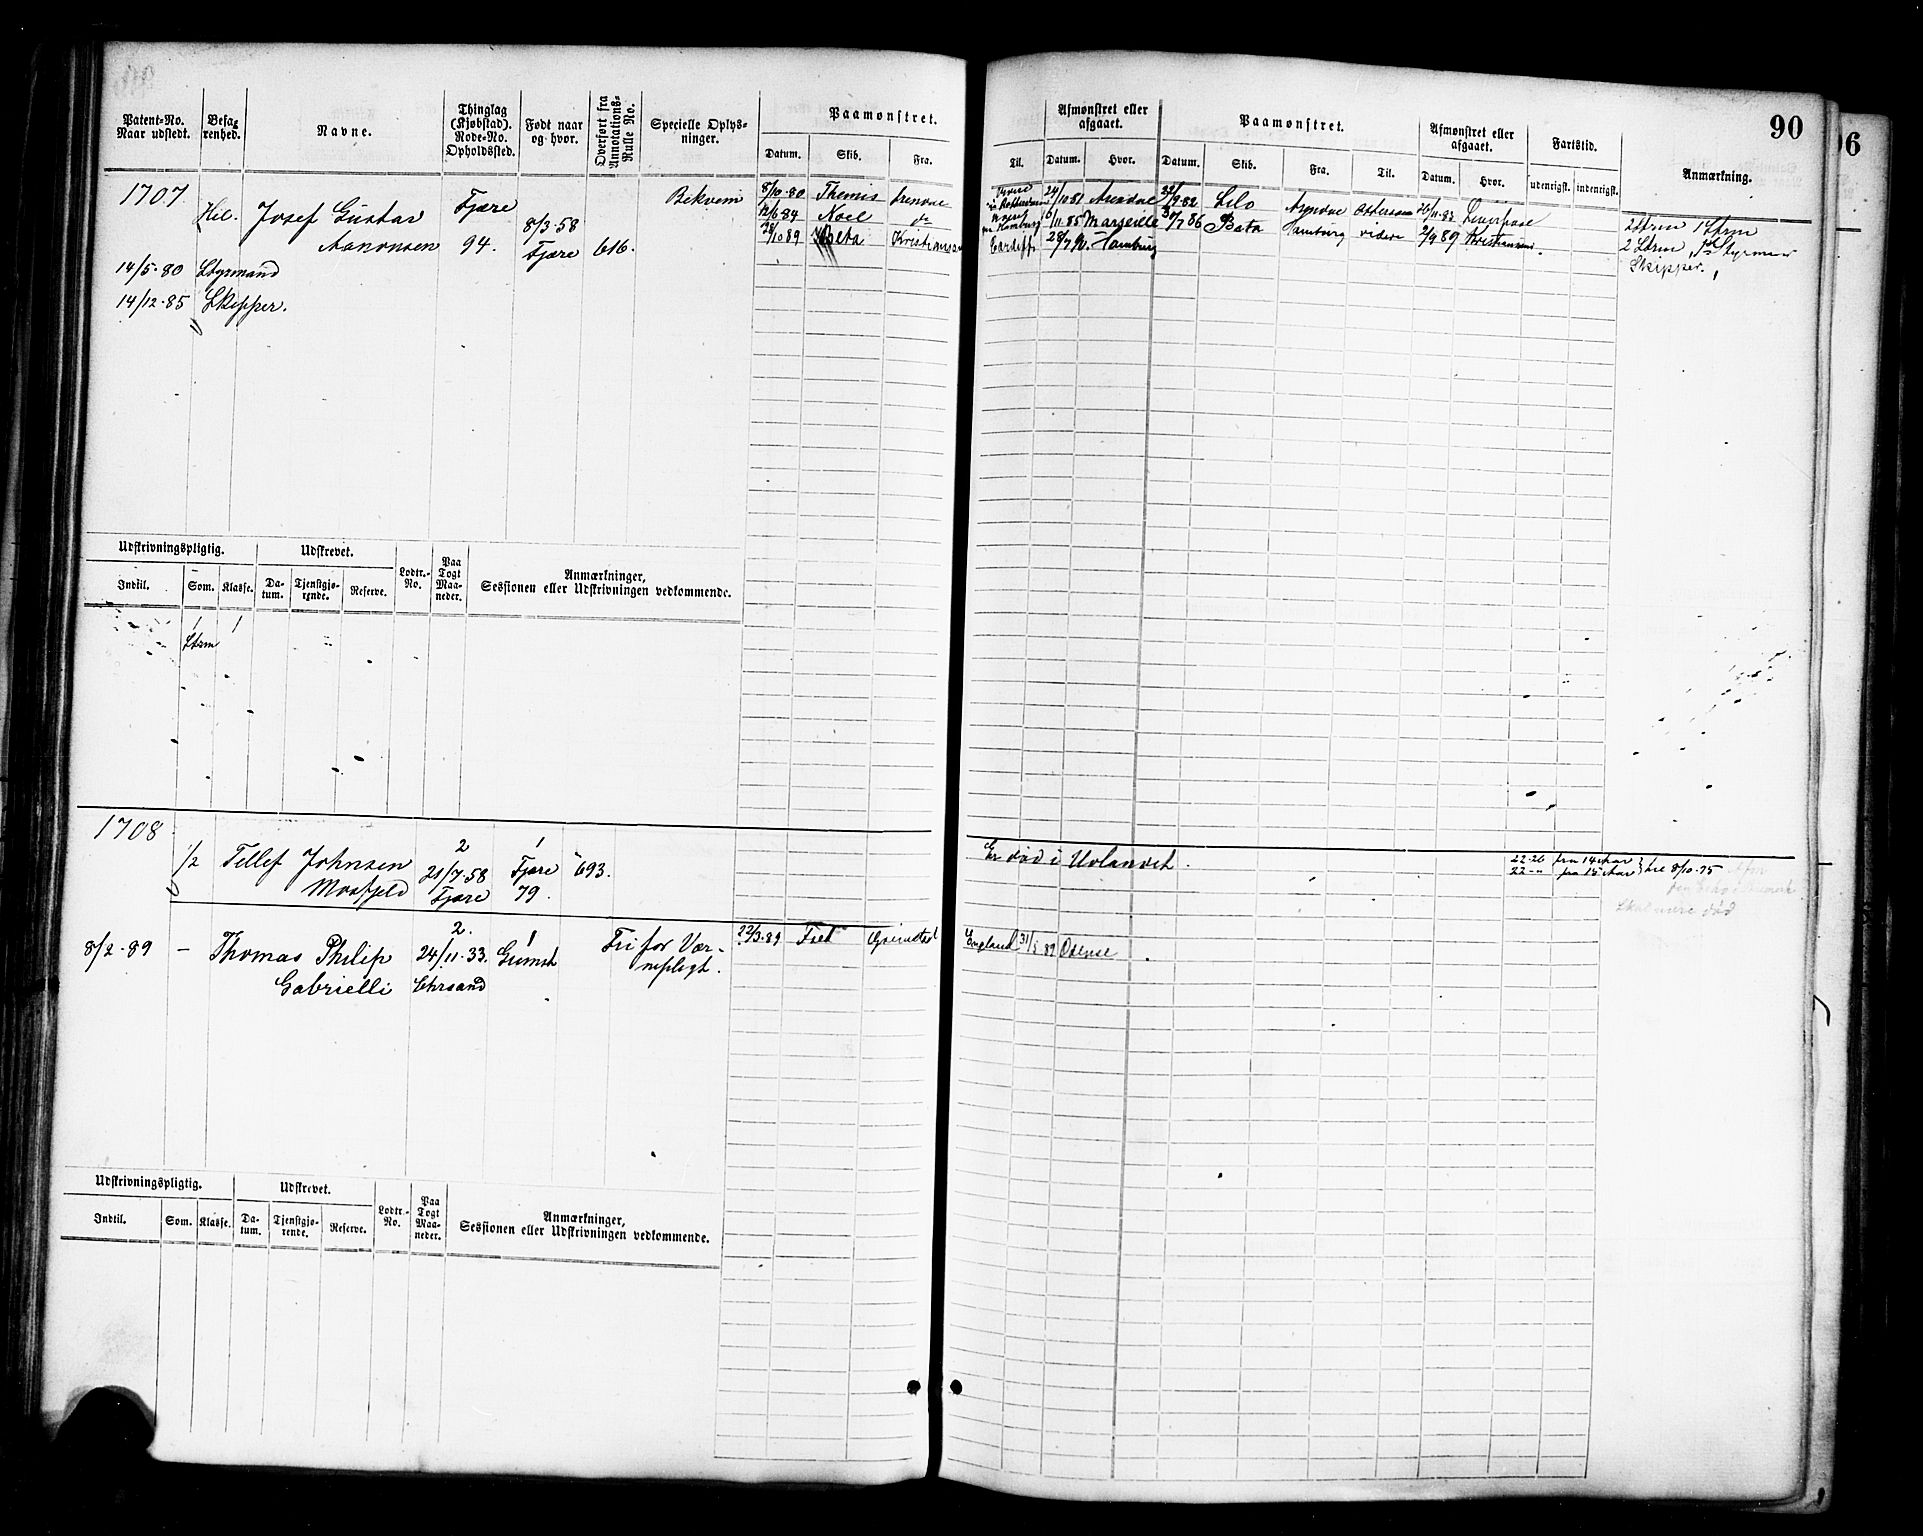 90
96
Patent-No. Naar udstedt.
Befarenhed.
Navne.
Thinglag (Kjøbstad). Rode-No. Opholdssted.
Født naar og hvor.
Overført fra Annotations-Rulle No.
Specielle Oplysninger.
Paamønstret.
Datum. Skib. Fra. Til.
Afmønstret eller afgaaet.
Datum. Hvor.
Paamønstret.
Datum. Skib. Fra. Til.
Afmønstret eller afgaaet.
Datum. Hvor.
Fartstid.
udenrigst. indenrigst.
Anmærkning.
1707
Hel. Josef Gustav
Aanonsen
Fjære
94.
8/3-58
Fjære
616.
Bekvem
14/5-80 Styrmand
14/12-85 Skipper.
8/10-80 Themis
24/10 81 Arendal 22/9-82 Lilo
12/6 84 Noel do
Hamburg 6/11 85 Marseille 30/7 86 Bata Hamburg videre 2/9 89 Kristiansand
28/10 89 Beta Kristiansand
Cardiff Hamburg
2 Strm 1 Strm
2 Strm, 1ste Styrmand
Skipper.
Udskrivningspligtig. Udskrevet. Lodtr.-No. Paa Togt Maaneder. Anmærkninger, Sessionen eller Udskrivningen vedkommende.
Indtil. Som. Klasse. Datum. Tjenstgjørende. Reserve.
Strm
1708
1/2 Tellef Johnsen
Moxfjeld
2
21/7-58
Fjære
1
Fjære
79.
693.
Er død i Udlandet.
22-26 fra 14 Aar
22-" fra 15 Aar
8/10-75
død
8/2-89 – Thomas Philip
Gabrielli
2.
24/11-33.
Chrsand
1
Grimst
Fri for Vær-
nepligt.
22/3-89 Fred Grimstad
England 31/5 89 Odense
Udskrivningspligtig. Udskrevet. Lodtr.-No. Paa Togt Maaneder. Anmærkninger, Sessionen eller Udskrivningen vedkommende.
Indtil. Som. Klasse. Datum. Tjenstgjørende. Reserve.